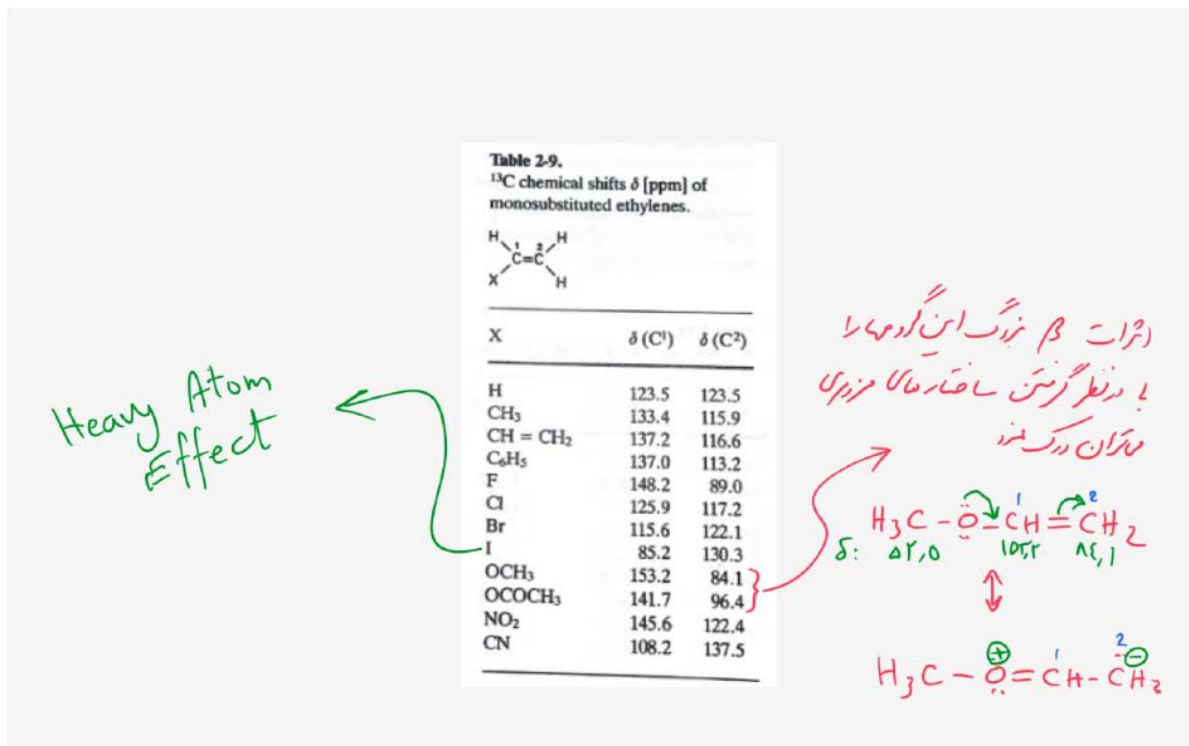 Table 2-9.
¹³C chemical shifts δ [ppm] of
monosubstituted ethylenes.
H 1 2 H
C=C
X H
X δ (C¹) δ (C²)
H 123.5 123.5
CH₃ 133.4 115.9
CH = CH₂ 137.2 116.6
C₆H₅ 137.0 113.2
F 148.2 89.0
Cl 125.9 117.2
Br 115.6 122.1
I 85.2 130.3
OCH₃ 153.2 84.1
OCOCH₃ 141.7 96.4
NO₂ 145.6 122.4
CN 108.2 137.5
Heavy Atom
Effect
اثرات β بزرگ این گروهها را
با درنظر گرفتن ساختارهای مزومری
میتوان درک
1 2
H₃C - Ö - CH = CH₂
δ: ۵۲,۵ ۱۵۳,۲ ۸۴,۱
↕
⊕ 1 2 ⊖
H₃C - O = CH - CH₂